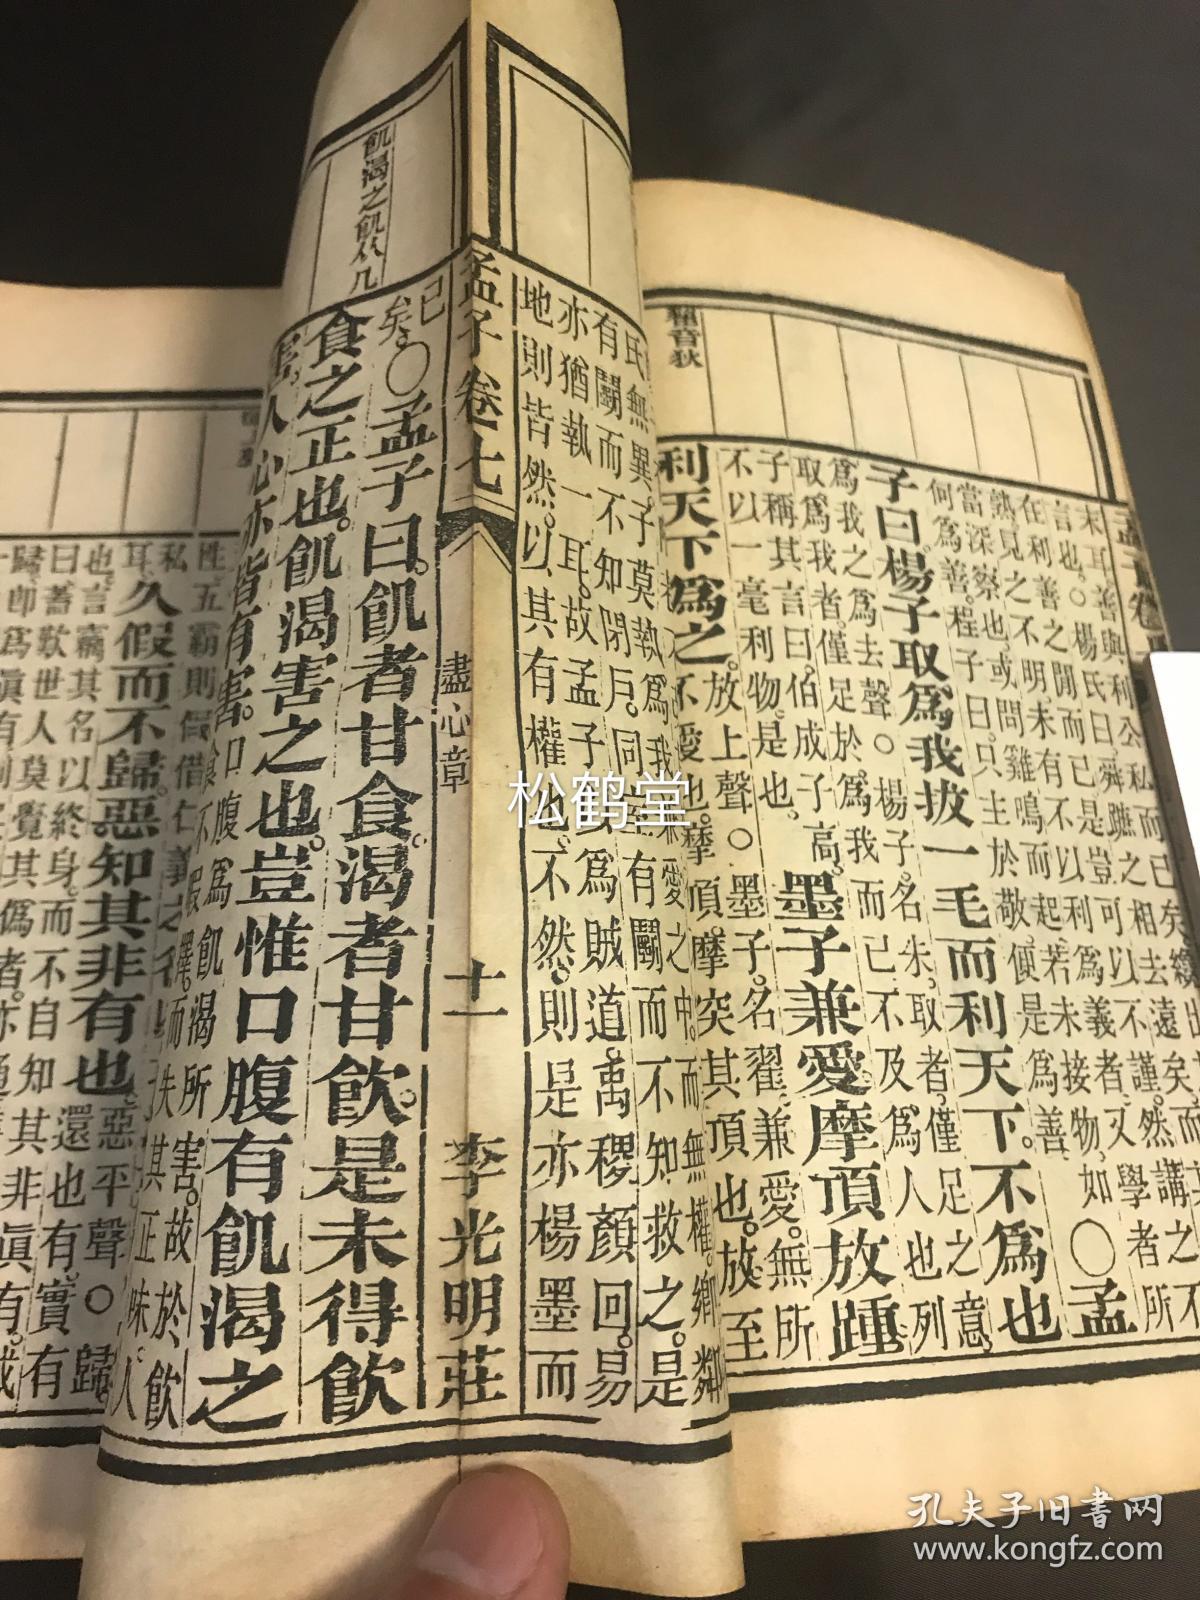 末耳善與利公私而已矣纔出
言也○楊氏曰舜蹠之相去遠矣而
在利善之閒而已是豈可以不謹然講之
熟見之不明未有不以利為義者又學者所
當深察也或問雞鳴而起若未接物如
何為善程子曰只主於敬便是為善○孟
子曰楊子取爲我拔一毛而利天下不爲也
爲我之爲去聲○楊子名朱取者僅足之意
取爲我者僅足於爲我而已不及爲人也列
子稱其言曰伯成子高
不以一毫利物是也墨子兼愛摩頂放踵
利天下爲之放上聲○墨子名翟兼愛無所
不愛也摩頂摩突其頂也放至
獾音狄
氏無異子莫執爲我兼愛之中而無權鄉鄰
有鬭而不知閉戶同室有鬭而不知救之是
亦猶執一耳故孟子以爲賊道禹稷顏回易
地則皆然以其有權也不然則是亦楊墨而
孟子卷七
盡心章
十一
李光明莊
飢渴之飢从几
已
矣○孟子曰飢者甘食渴者甘飲是未得飲
食之正也飢渴害之也豈惟口腹有飢渴之
害人心亦皆有害口腹爲飢渴所害故於飲
食不暇擇而失其正味人
姓五霸則假借仁義之
私耳久假而不歸惡知其非有也惡平聲○歸
還也有實有
也言竊其名以終身而不自知其非眞有
曰蓄歎世人莫覺其僞者亦通
松鹤堂
孔夫子旧书网
www.kongfz.com